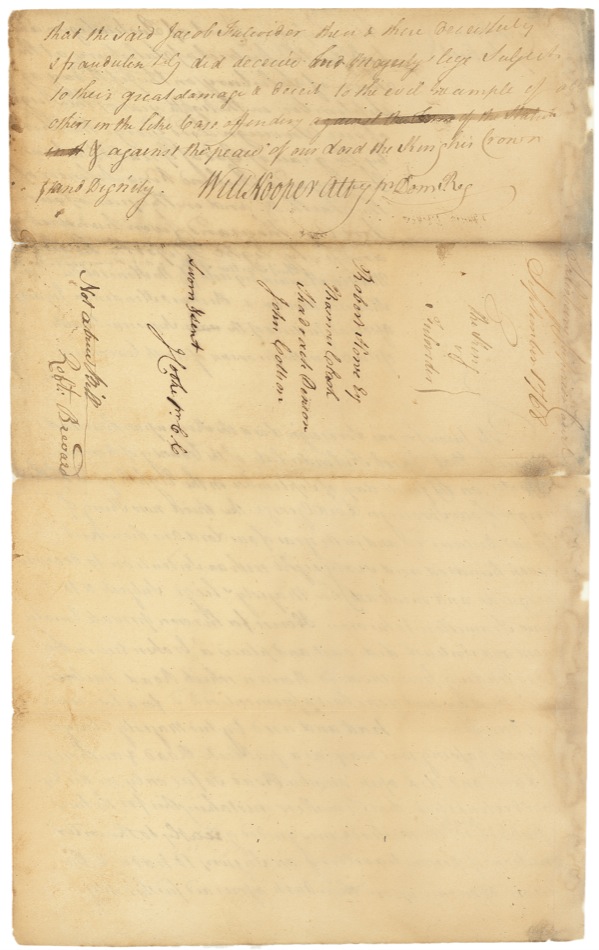 that the said Jacob Fulwider then & there Deceitfully
& fraudulently did deceive his Majestys liege Subjects
to their great damage & deceit to the evil Example of
others in the like Case offending against the form of the Statute
& against the peace of our Lord the King his Crown
and Dignity. Will Hooper Atty pr Dom Reg
Salisbury Superior Court
September 1768
The King
vs
Robert Esq
Shadrach Denson
John Cotton
Sworn & sent
J Cooke pr C C
Not a true Bill
Robt. Brevard